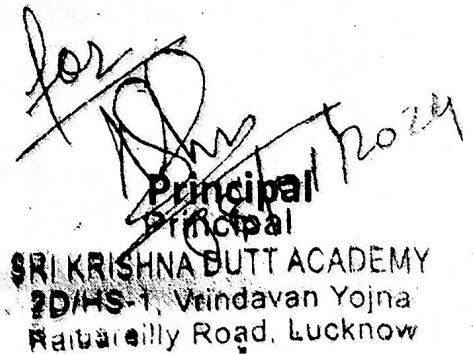 for
2024
Principal
Principal
SRI KRISHNA DUTT ACADEMY
2D/HS-1, Vrindavan Yojna
Raibareilly Road, Lucknow